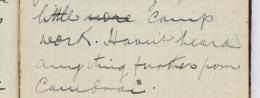 little more camp
work. Havin't heard
anything further from
Cambrai.